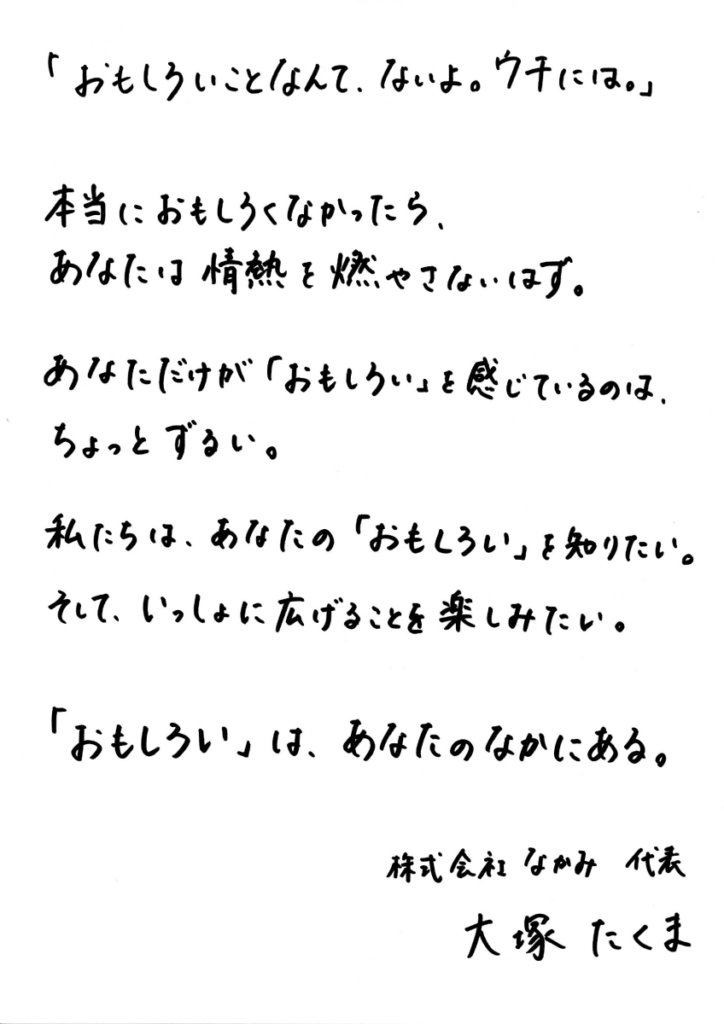 「おもしろいことなんて、ないよ。ウチには。」
本当におもしろくなかったら、
あなたは情熱を燃やさないはず。
あなただけが「おもしろい」を感じているのは、
ちょっとずるい。
私たちは、あなたの「おもしろい」を知りたい。
そして、いっしょに広げることを楽しみたい。
「おもしろい」は、あなたのなかにある。
株式会社なかみ 代表
大塚 たくま